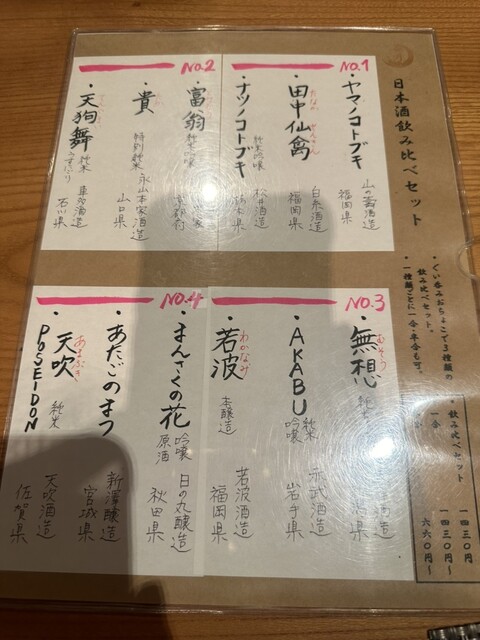 日本酒飲み比べセット
・ぐい呑みおちょこで3種類の
飲み比べセット。
・一種類ごとに一合・半合も可。
飲み比べセット
一四三〇円
一合
一四三〇円〜
六六〇円〜
No.1
・ヤマノコトブキ
山の壽酒造
福岡県
・田中仙禽
たなか せんきん
白糸酒造
福岡県
・ナツノコトブキ
純米吟醸
松井酒造
栃木県
No.2
・富翁
純米吟醸
京都府
・貴
特別純米
永山本家酒造
山口県
・天狗舞
純米
うすにごり
車多酒造
石川県
No.3
・無想
むそう
純米
酒造
・AKABU
純米
吟醸
赤武酒造
岩手県
・若波
わかなみ
本醸造
若波酒造
福岡県
No.4
・まんさくの花
吟醸
原酒
日の丸醸造
秋田県
・あたごのまつ
新澤醸造
宮城県
・天吹
あまぶき
純米
POSEIDON
天吹酒造
佐賀県